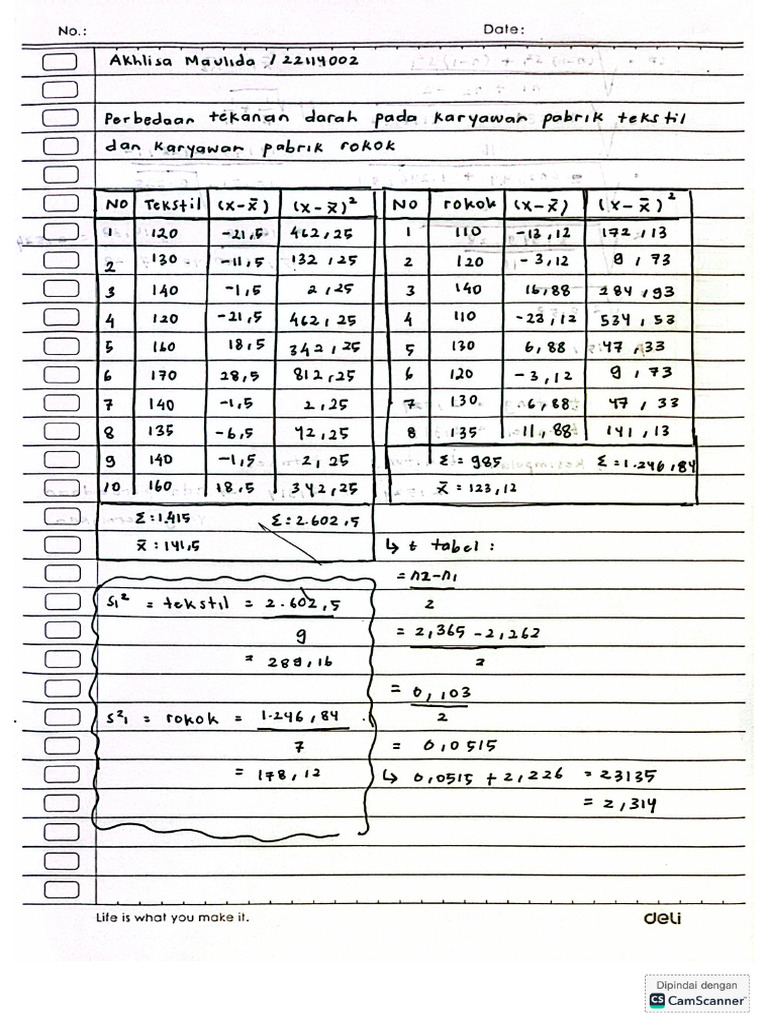 No.: Date:
Akhlisa Maulida / 22114002
Perbedaan tekanan darah pada karyawan pabrik tekstil
dan karyawan pabrik rokok
NO Tekstil (x-x̄) (x-x̄)² NO rokok (x-x̄) (x-x̄)²
1 120 -21,5 462,25 1 110 -13,12 172,13
2 130 -11,5 132,25 2 120 -3,12 9,73
3 140 -1,5 2,25 3 140 16,88 284,93
4 120 -21,5 462,25 4 110 -23,12 534,53
5 160 18,5 342,25 5 130 6,88 47,33
6 170 28,5 812,25 6 120 -3,12 9,73
7 140 -1,5 2,25 7 130 -6,88 47,33
8 135 -6,5 42,25 8 135 11,88 141,13
9 140 -1,5 2,25 Σ = 985 Σ = 1.246,84
10 160 18,5 342,25 x̄ = 123,12
Σ : 1.415 Σ : 2.602,5
x̄ : 141,5 ↳ t tabel :
= n2-n1
S₁² = tekstil = 2.602,5 2
9 = 2,365 - 2,262
= 289,16 2
= 0,103
S²₁ = rokok = 1.246,84 2
7 = 0,0515
= 178,12 ↳ 0,0515 + 2,226 = 23135
= 2,314
Life is what you make it. deli
Dipindai dengan
CS CamScanner